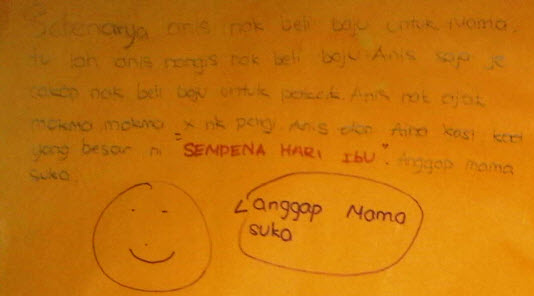 Sebenarnya anis nak beli baju untuk Mama,
tu lah anis nangis nak beli baju. Anis saja je
cakap nak beli baju untuk pascik. Anis nak ajak
makma makma x nk pergi. Anis dan Aina kasi kad
yang besar ni "SEMPENA HARI IBU". Anggap mama
suka
Anggap Mama
suka